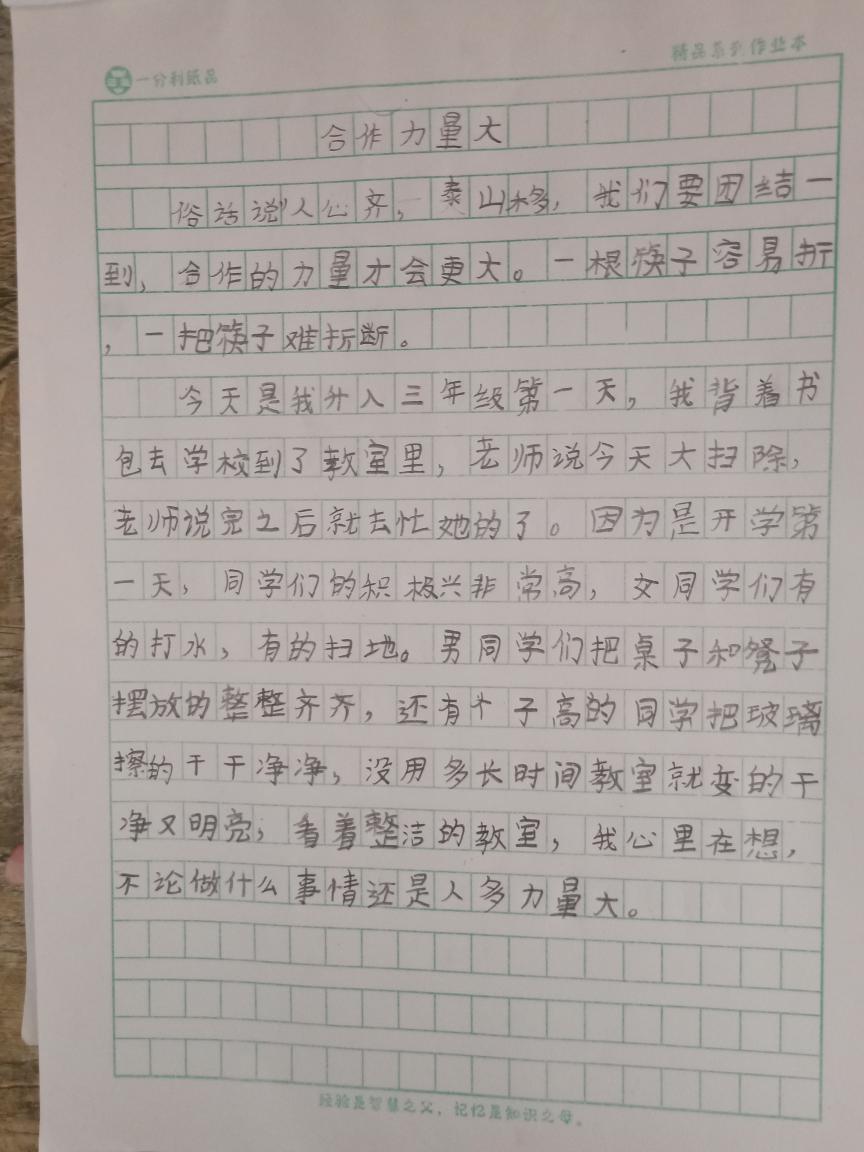 一分利纸品
精品系列作业本
合作力量大
俗话说"人心齐，泰山移，我们要团结一
到，合作的力量才会更大。一根筷子容易折
，一把筷子难折断。
今天是我升入三年级第一天，我背着书
包去学校到了教室里，老师说今天大扫除，
老师说完之后就去忙她的了。因为是开学第
一天，同学们的积极兴非常高，女同学们有
的打水，有的扫地。男同学们把桌子和凳子
摆放的整整齐齐，还有个子高的同学把玻璃
擦的干干净净，没用多长时间教室就变的干
净又明亮，看着整洁的教室，我心里在想，
不论做什么事情还是人多力量大。
经验是智慧之父，记忆是知识之母。